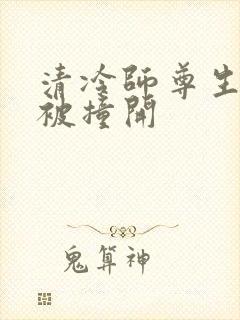 清冷师尊生
被撞开
鬼算神